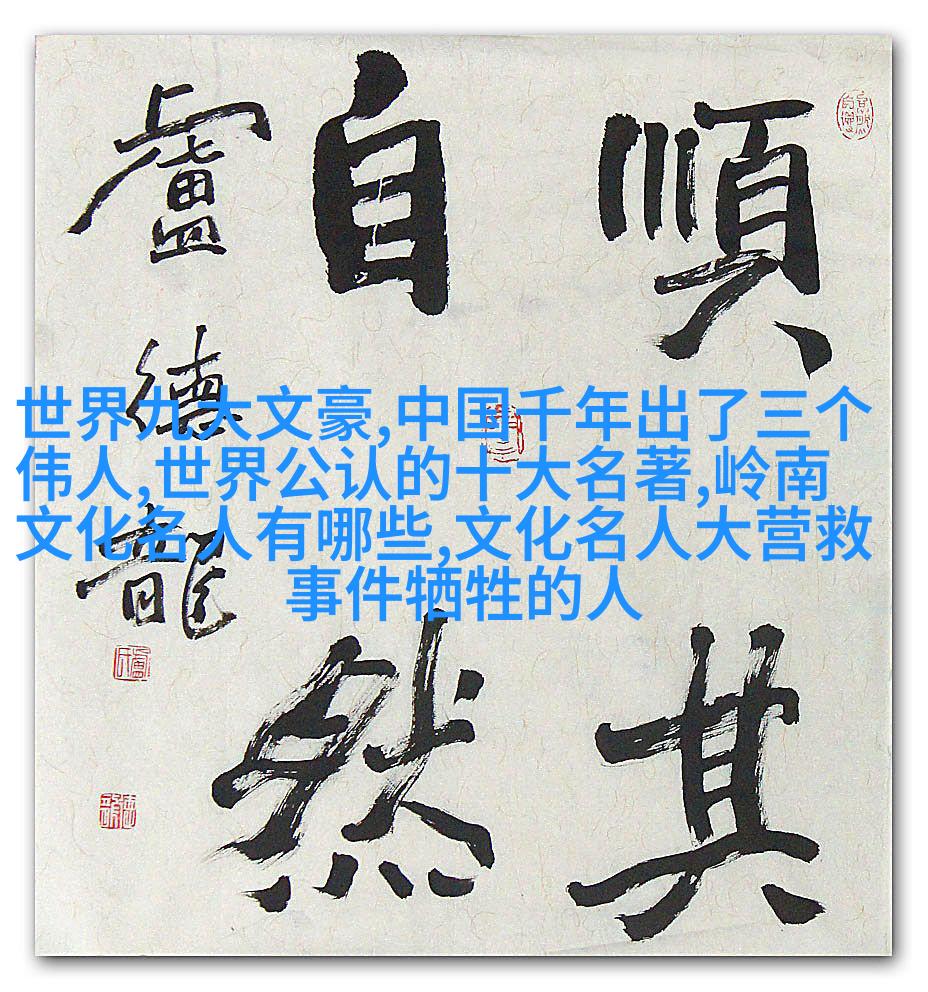 順其
自然
盧德龍
世界九大文豪,中国千年出了三个
伟人,世界公认的十大名著,岭南
文化名人有哪些,文化名人大营救
事件牺牲的人